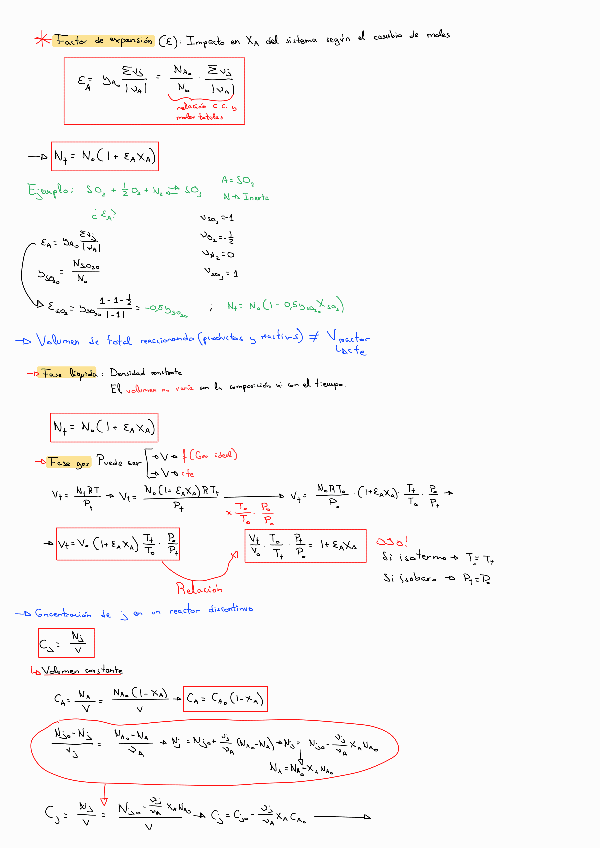 * Factor de expansión (ε). Impacto en XA del sistema según el cambio de moles
εA = yA₀ Σνj / |νA| = NA₀ / N₀ · Σνj / |νA|
relación c.c. y
moles totales
→ Nt = N₀(1 + εA XA)
Ejemplo: SO₂ + 1/2 O₂ + N₂ ⇄ SO₃
A = SO₂
N → Inerte
¿ εA?
εA = yA₀ Σνj / |νA|
ySO₂₀ = NSO₂₀ / N₀
νSO₂ = -1
νO₂ = -1/2
νN₂ = 0
νSO₃ = 1
→ εSO₂ = ySO₂₀ (1 - 1 - 1/2) / |-1| = -0,5 ySO₂₀ ; Nt = N₀(1 - 0,5 ySO₂₀ XSO₂)
→ Volumen de total reaccionando (productos y reactivos) ≠ Vreactor
↳ cte
→ Fase líquida: Densidad constante
El volumen no varía con la composición ni con el tiempo.
Nt = N₀(1 + εA XA)
→ Fase gas Puede ser → V → f(Gas ideal)
→ V → cte
Vt = Nt RT / Pt → Vt = N₀(1 + εA XA) R Tt / Pt → Vt = N₀ R T₀ / P₀ · (1 + εA XA) · Tt / T₀ · P₀ / Pt →
x T₀ / T₀ · P₀ / P₀
→ Vt = V₀(1 + εA XA) Tt / T₀ · P₀ / Pt
Vt / V₀ · T₀ / Tt · Pt / P₀ = 1 + εA XA
OJO!
Si isotermo → T₀ = Tt
Si isobaro → Pt = P₀
Relación
→ Concentración de j en un reactor discontinuo
Cj = Nj / V
↳ Volumen constante
CA = NA / V = NA₀(1 - XA) / V → CA = CA₀(1 - XA)
Nj₀ - Nj / νj = NA₀ - NA / νA → Nj = Nj₀ + νj / νA (NA - NA₀) → Nj = Nj₀ - νj / νA XA NA₀
NA = NA₀ - XA NA₀
Cj = Nj / V = (Nj₀ - νj / νA XA NA₀) / V → Cj = Cj₀ - νj / νA XA CA₀ →